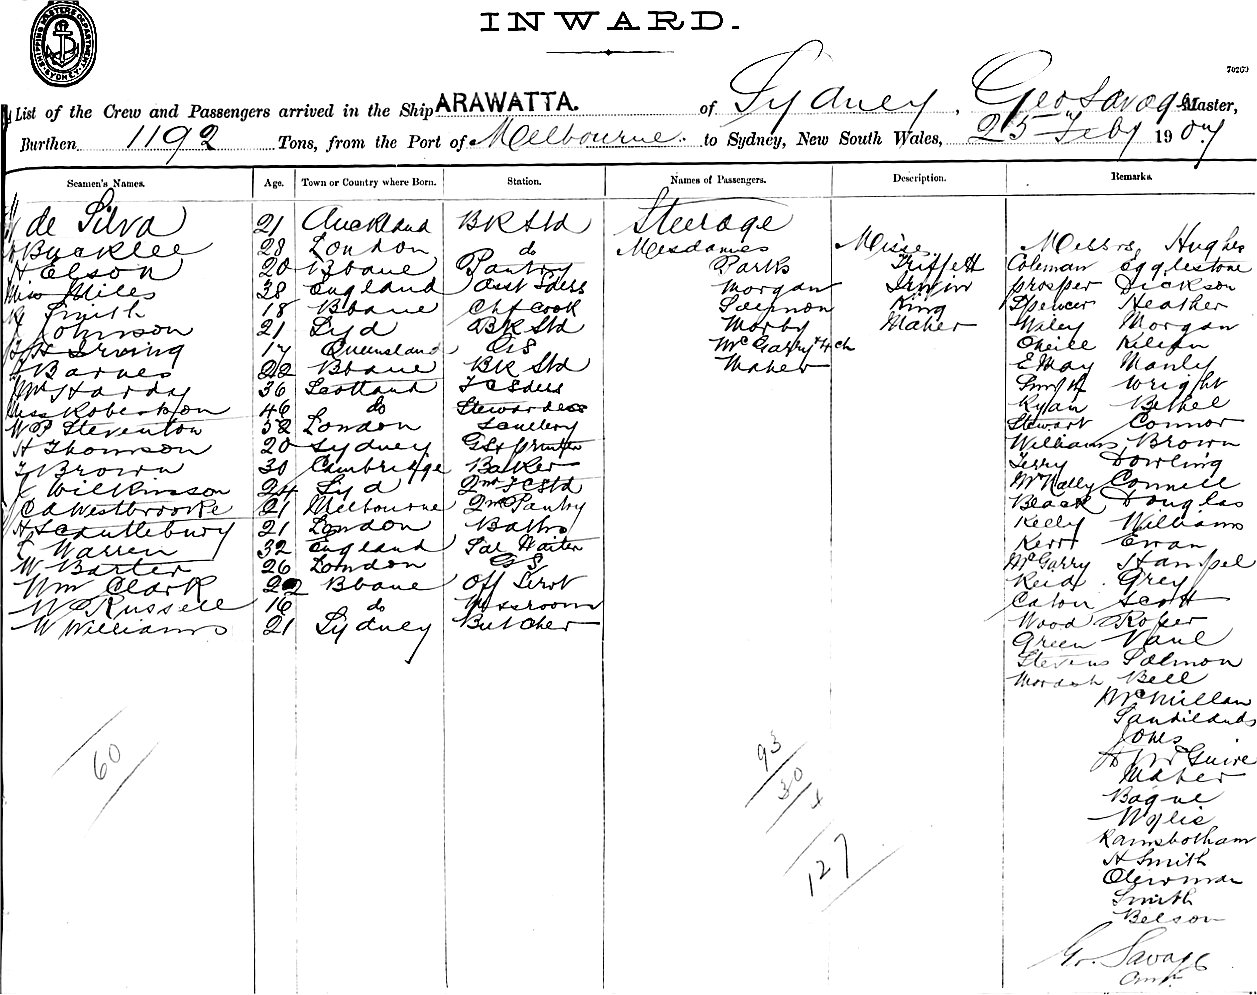 INWARD.
SHIPPING MASTERS DEPARTMENT SYDNEY
70269
List of the Crew and Passengers arrived in the Ship ARAWATTA. of Sydney, Geo Savage Master,
Burthen 1192 Tons, from the Port of Melbourne to Sydney, New South Wales, 25 Feby 1907
Seamen's Names. Age. Town or Country where Born. Station. Names of Passengers. Description. Remarks.
de Silva 21 Auckland BK Std Steerage
Bucklee 28 London do Mesdames Misses Messrs Hughes
H Elson 20 Bbane Pantry Parks Triffett Coleman Egglestone
Miss Miles 38 England Asst Sdess Morgan Irwin Prosper Dickson
Smith 18 Bbane Chf Cook Salmon King Spencer Heather
J Johnson 21 Syd BK Std Morby Maher Maley Morgan
Irving 17 Queensland GS McGarry + 4 ch Oneill Kilian
Barnes 22 Bbane BK Std Maher E May Manly
Mrs Hardy 36 Scotland FC Sdess Smith Wright
Miss Robertson 46 do Stewardess Ryan Bethel
W P Steventon 52 London Scullery Stewart Connor
H Thomson 20 Sydney GS & printer Williams Brown
Brown 30 Cambridge Baker Terry Dowling
Wilkinson 24 Syd 2nd FC Std McNally Connell
C A Westbrooke 21 Melbourne 2nd Pantry Black Douglas
H Scantlebury 21 London Baths Kelly Williams
Warren 32 England Sal Waiter Kerr Ewan
W Barter 26 London GS McGarry Hampel
Wm Clark 22 Bbane Off Servt Reid Grey
W Russell 16 do Messroom Caton Scott
W Williams 21 Sydney Butcher Wood Roper
Green Vaul
Stevens Salmon
Mordah Bell
McMillan
Sandilands
Jones
McGuire
Maher
Bague
Wylie
Ramsbotham
H Smith
Olerman
Smith
Belson
60
93
30
4
127
Geo. Savage